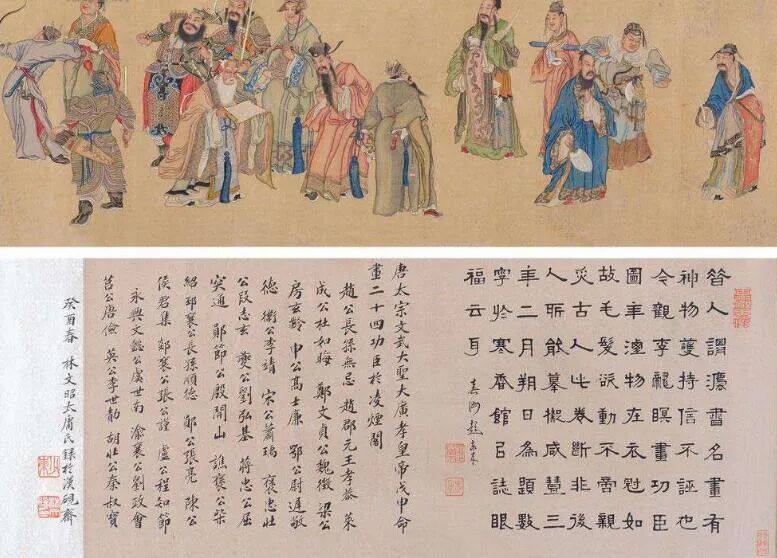 昔人謂灋書名畫有
神物護持信不誣也
今觀李龍瞑畫功臣
圖年湮物在衣冠如
故毛髮欲動不啻親
炙古人此卷斷非後
人所能摹擬咸豐三
年二月朔日數
寧於寒香館㠯誌眼
福云耳
唐太宗文武大聖大廣孝皇帝戊申命
畫二十四功臣於凌煙閣
趙公長孫無忌 趙郡元王孝恭 萊
成公杜如晦 鄭文貞公魏徵 梁公
房玄齡 申公高士廉 鄂公尉遲敬
德 衛公李靖 宋公蕭瑀 褒忠壯
公段志玄 夔公劉弘基 蔣忠公屈
突通 鄖節公殷開山 譙襄公柴
紹 邳襄公長孫順德 鄖公張亮 陳公
侯君集 郯襄公張公謹 盧公程知節
永興文懿公虞世南 渝襄公劉政會
莒公唐儉 英公李世勣 胡壯公秦叔寶
癸酉春 林文昭太庸氏錄於漢硯齋